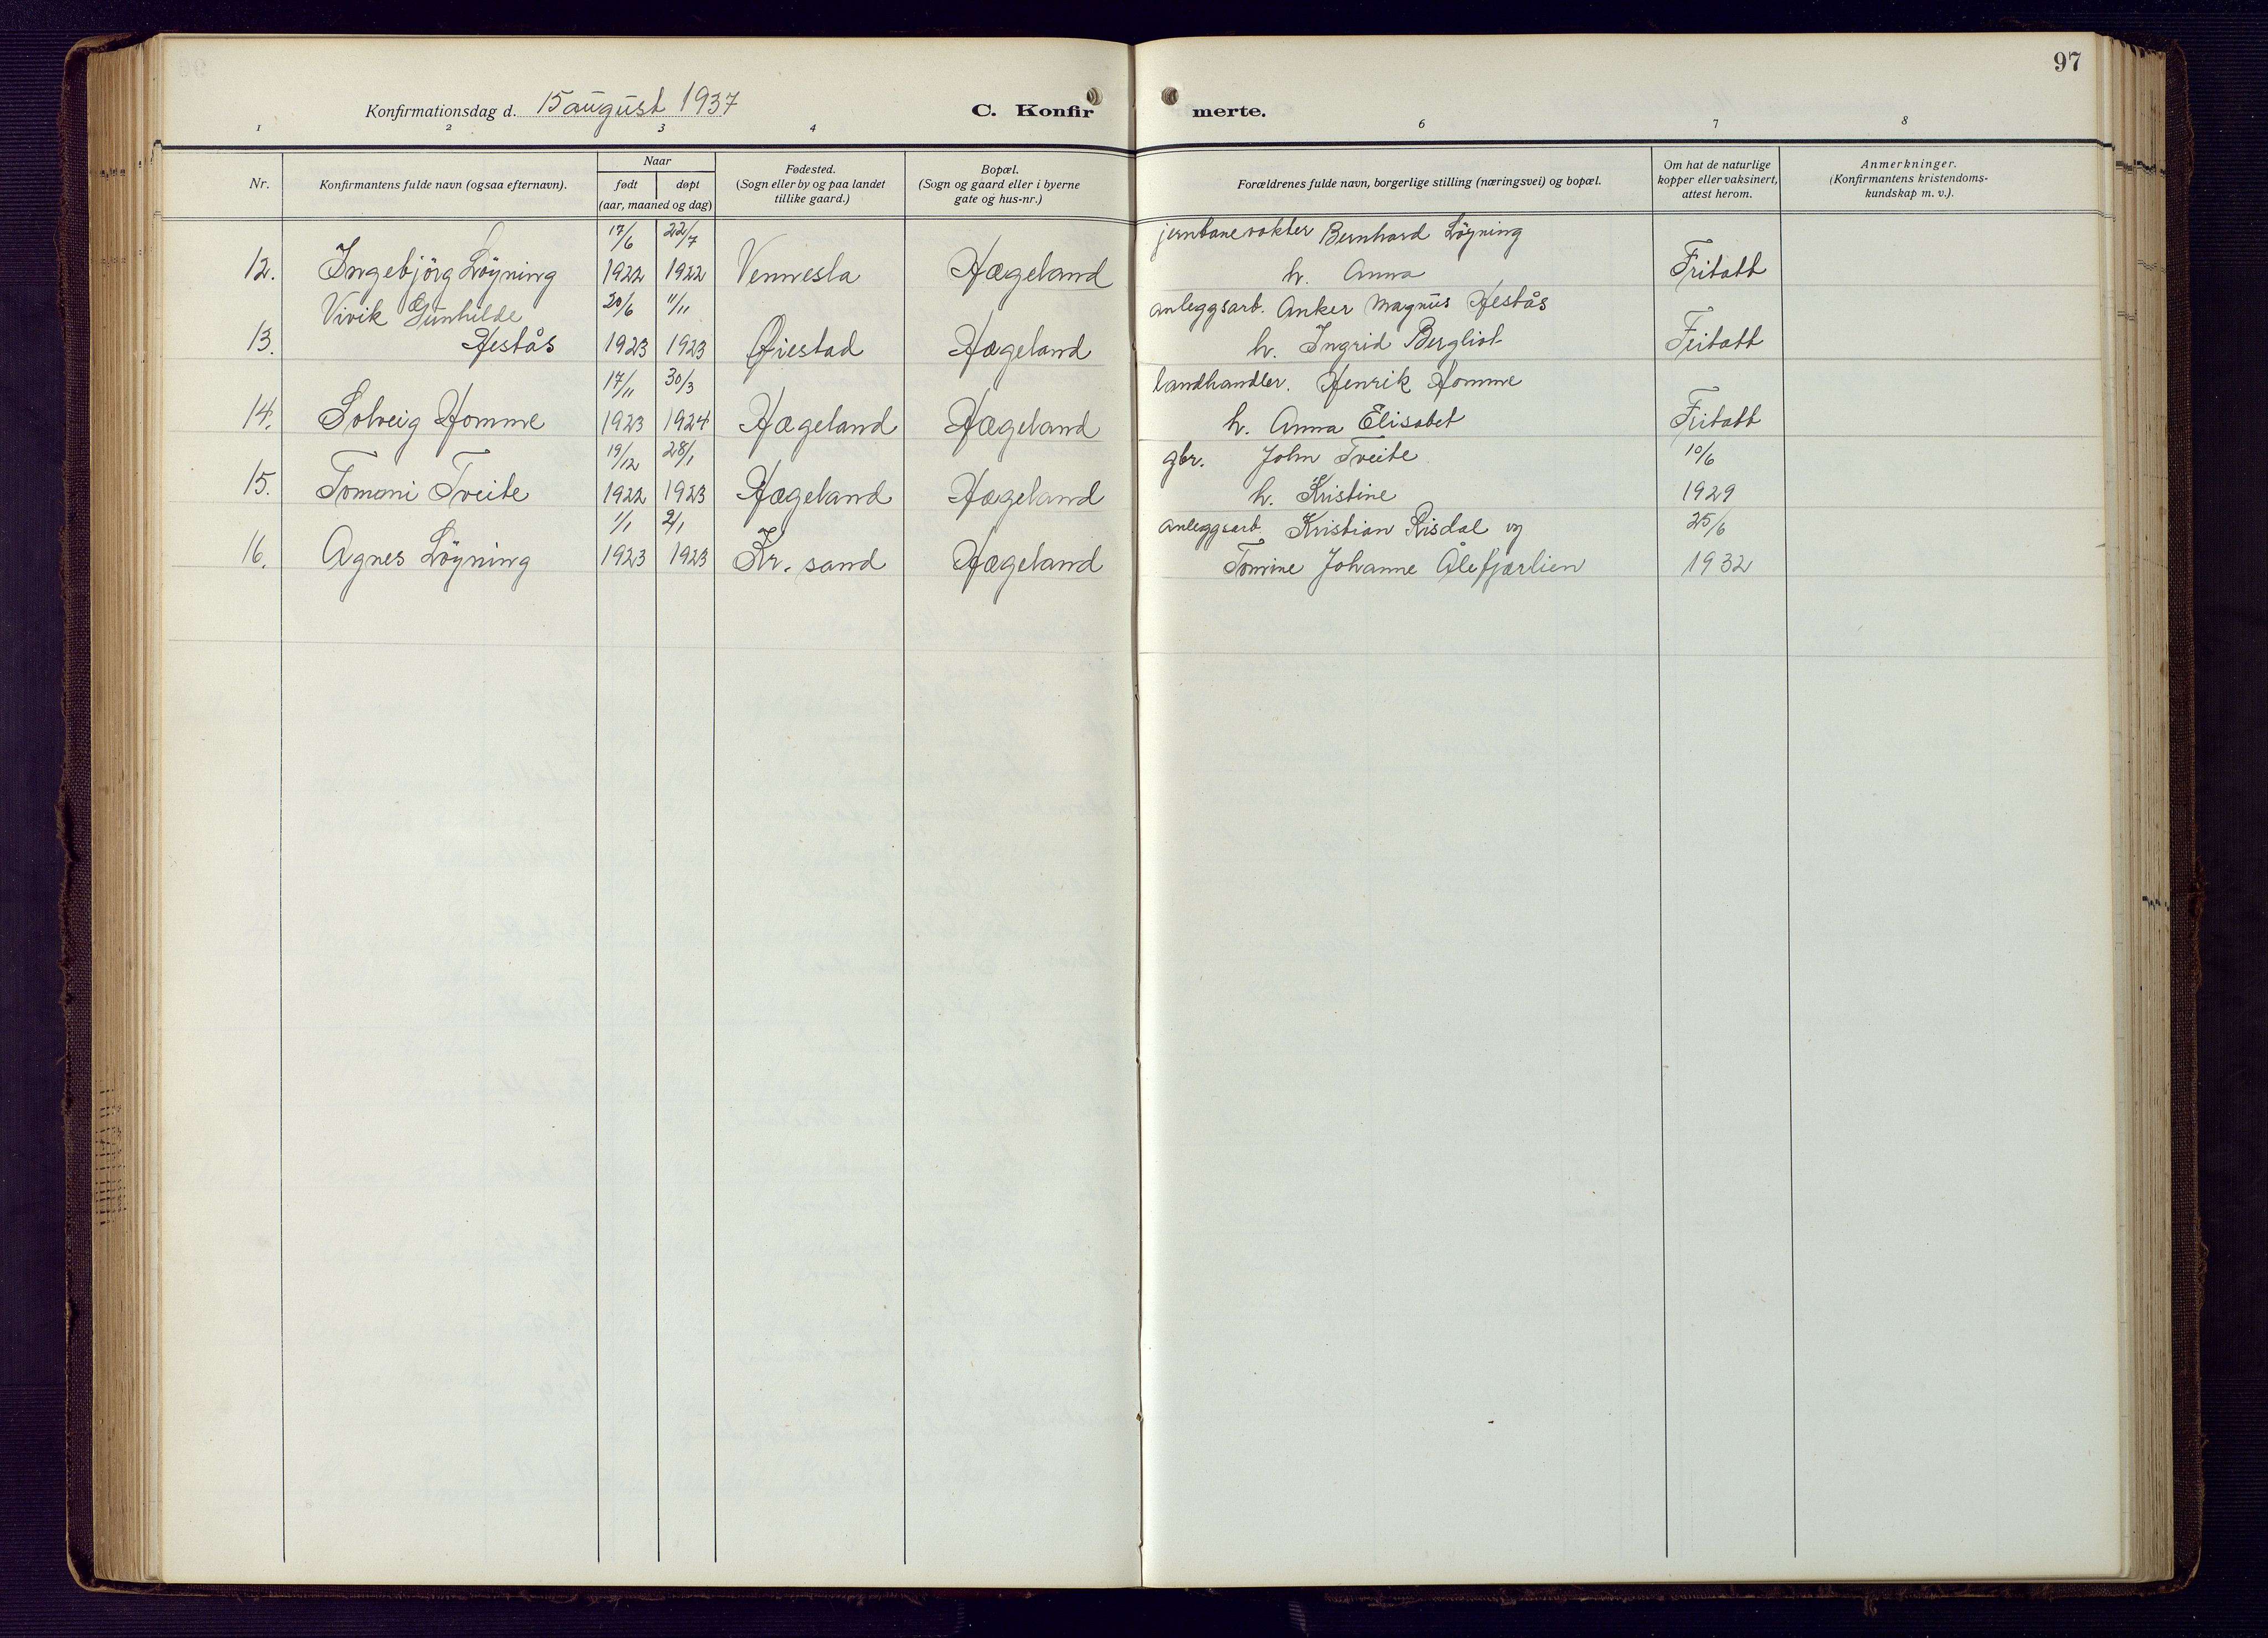 97
Konfirmationsdag d. 15 august 1937
C. Konfirmerte.
1 2 3 4 6 7 8
Nr.
Konfirmantens fulde navn (ogsaa efternavn).
Naar
født døpt
(aar, maaned og dag)
Fødested.
(Sogn eller by og paa landet
tillike gaard.)
Bopæl.
(Sogn og gaard eller i byerne
gate og hus-nr.)
Forældrenes fulde navn, borgerlige stilling (næringsvei) og bopæl.
Om hat de naturlige
kopper eller vaksinert,
attest herom.
Anmerkninger.
(Konfirmantens kristendoms-
kundskap m. v.).
17/6 22/7 jernbanevokter Bernhard Löyning
12. Ingebjörg Löyning 1922 1922 Vennesla Hægeland h. Anna Fritatt
Vivik Gunhilde 20/6 11/11 anleggsarb. Anker Magnus Hestås
13. Hestås 1923 1923 Øiestad Hægeland h. Ingrid Bergliot Fritatt
17/11 30/3 landhandler. Henrik Homme
14. Solveig Homme 1923 1924 Hægeland Hægeland h. Anna Elisabet Fritatt
19/12 28/1 gbr. John Tveite 10/6
15. Tomoni Tveite 1922 1923 Hægeland Hægeland h. Kristine 1929
1/1 2/1 anleggsarb. Kristian Risdal og 25/6
16. Agnes Löyning 1923 1923 Kr. sand Hægeland Tomine Johanne Ålefjærlien 1932